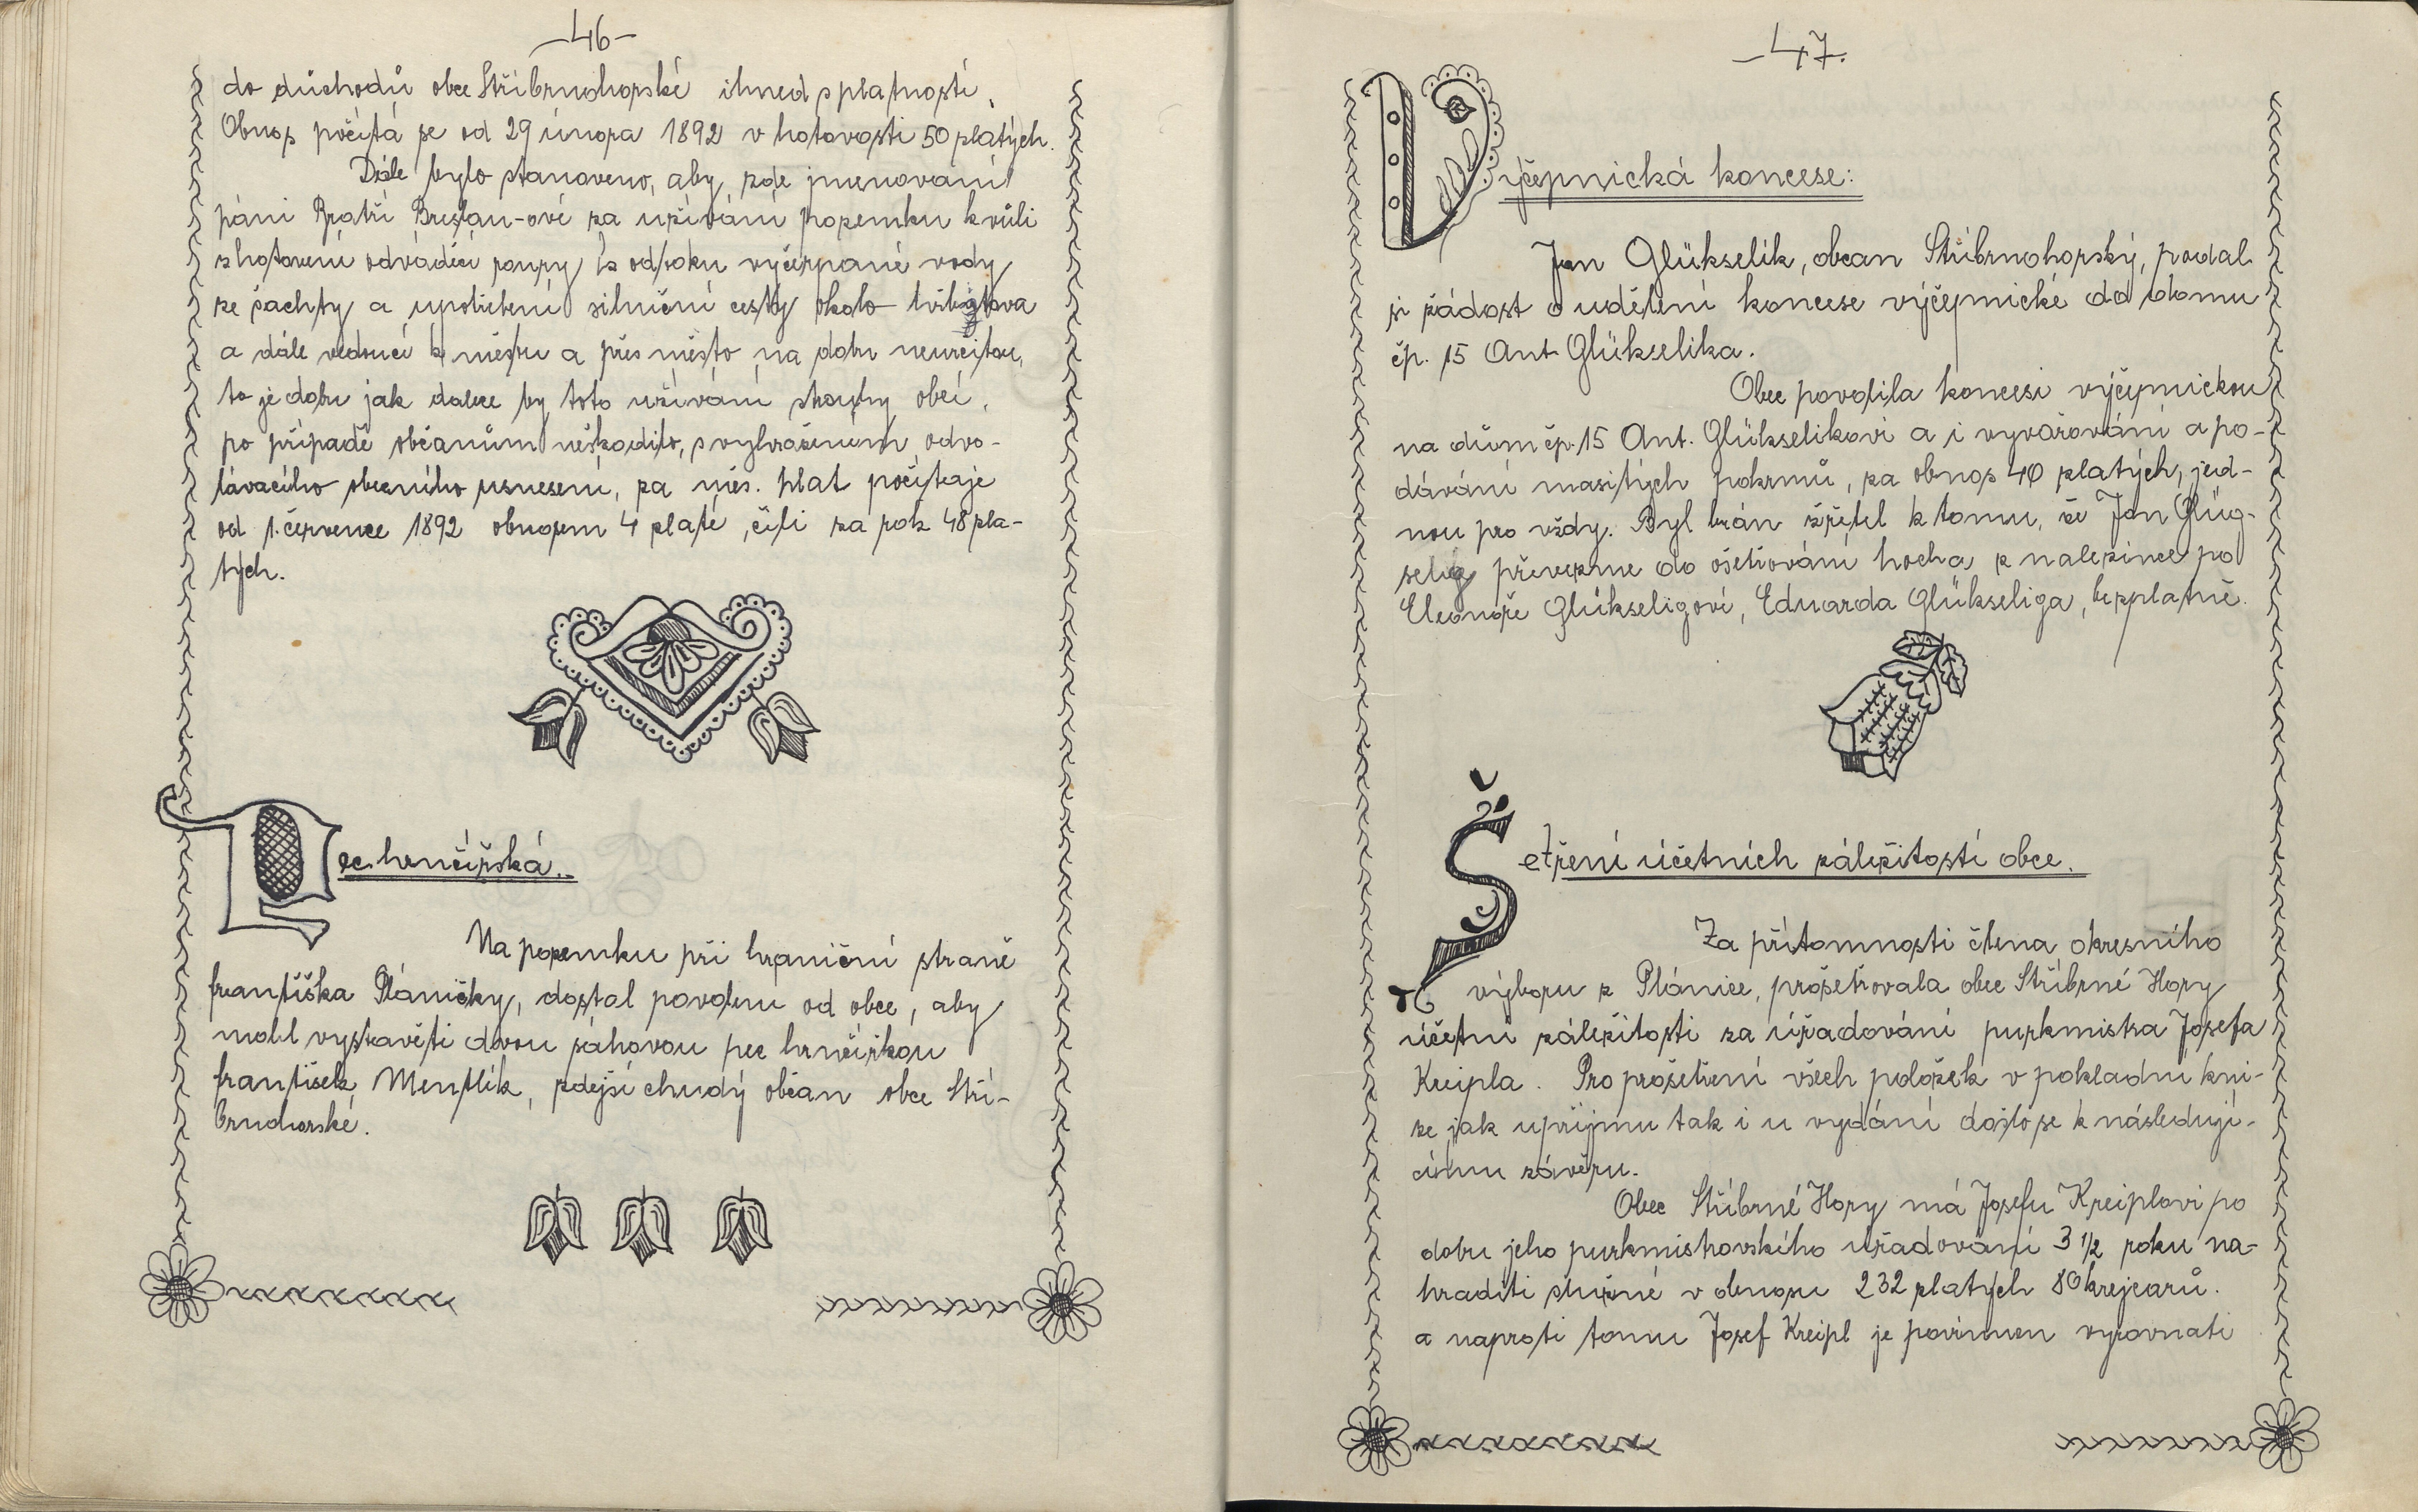 -46-
do důchodů obce Stříbrnohorské ihned s platností.
Obnos počítá se od 29 února 1892 v hotovosti 50 zlatých.
Dále bylo stanoveno, aby zde jmenovaní
páni Bratři Breslau-ové za užívání pozemku kvůli
zhotovení odváděcí roury k odtoku vyčerpané vody
ze šachty a upotřebení silniční cesty okolo hřbitova
a dále vedoucí k městu a přes město na dobu neurčitou,
to je dobu jak dalece by toto užívání stouhy obci,
po případě občanům neškodilo, s vyhražením odvo-
lávacího obecního usnesení, za měs. plat počítaje
od 1. července 1892 obnosem 4 zlaté, čili za rok 48 zla-
tých.
Pec hrnčířská.
Na pozemku při hraniční straně
františka Pláničky, dostal povolenu od obce, aby
mohl vystavěti dvou sáhovou pec hrnčířskou
františek Mentlík, zdejší chudý občan obce Stří-
brnohorské.
-47.
Výčepnická koncese:
Jan Glükselik, obcan Stříbrnohorský, podal
si žádost o udělení koncese výčepnické do domu
čp. 15 Ant Glükselika.
Obec povolila koncesi výčepnickou
na dům čp. 15 Ant. Glükselikovi a i vyvařování a po-
dávání masitých pokrmů, za obnos 40 zlatých, jed-
nou pro vždy. Byl brán zřetel k tomu, že Jan Glüg-
selig převezme do ošetřování hocha z nalezince po
Eleonoře Glükseligové, Eduarda Glükseliga, bezplatně.
Šetření účetních záležitostí obce.
Za přítomnosti člena okresního
výboru z Plánice, prošetřovala obec Stříbrné Hory
účetní záležitosti za úřadování purkmistra Josefa
Kreipla. Pro prošetření všech položek v pokladní kni-
ze jak u příjmu tak i u vydání došlo se k následují-
címu závěru.
Obec Stříbrné Hory má Josefu Kreiplovi po
dobu jeho purkmistrovského úřadování 3 1/2 roku na-
hraditi služné v obnosu 232 zlatých 80 krejcarů.
a naproti tomu Josef Kreipl je povinnen vyrovnati